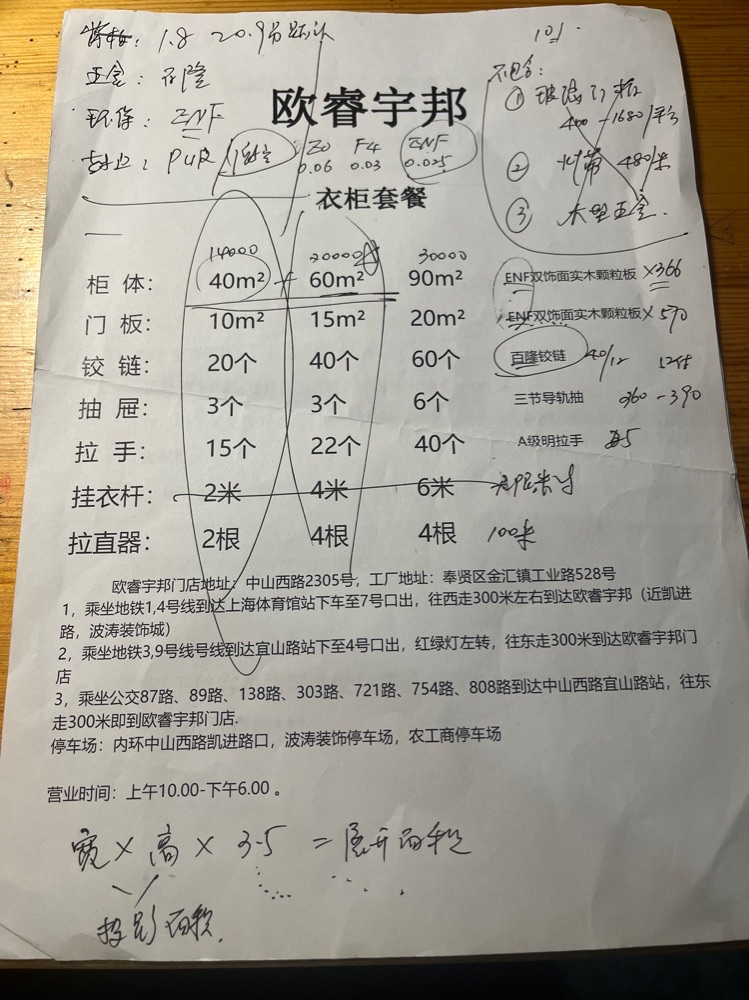 1.8
五金：百隆
环保：ENF
封边：PUR
欧睿宇邦
E0 F4 ENF
0.06 0.03 0.025
不包含：
① 玻璃门板
400-1680/平方
② 灯带 480/米
③ 大型五金.
衣柜套餐
14000 20000 30000
柜体： 40m² 60m² 90m² ENF双饰面实木颗粒板 ×366
门板： 10m² 15m² 20m² ENF双饰面实木颗粒板 ×570
铰链： 20个 40个 60个 百隆铰链
抽屉： 3个 3个 6个 三节导轨抽 360-390
拉手： 15个 22个 40个 A级明拉手
挂衣杆： 2米 4米 6米
拉直器： 2根 4根 4根
欧睿宇邦门店地址：中山西路2305号，工厂地址：奉贤区金汇镇工业路528号
1，乘坐地铁1,4号线到达上海体育馆站下车至7号口出，往西走300米左右到达欧睿宇邦（近凯进
路，波涛装饰城）
2，乘坐地铁3,9号线号线到达宜山路站下至4号口出，红绿灯左转，往东走300米到达欧睿宇邦门
店
3，乘坐公交87路、89路、138路、303路、721路、754路、808路到达中山西路宜山路站，往东
走300米即到欧睿宇邦门店.
停车场：内环中山西路凯进路口，波涛装饰停车场，农工商停车场
营业时间：上午10.00-下午6.00 。
宽×高×3.5 =展开面积
投影面积.